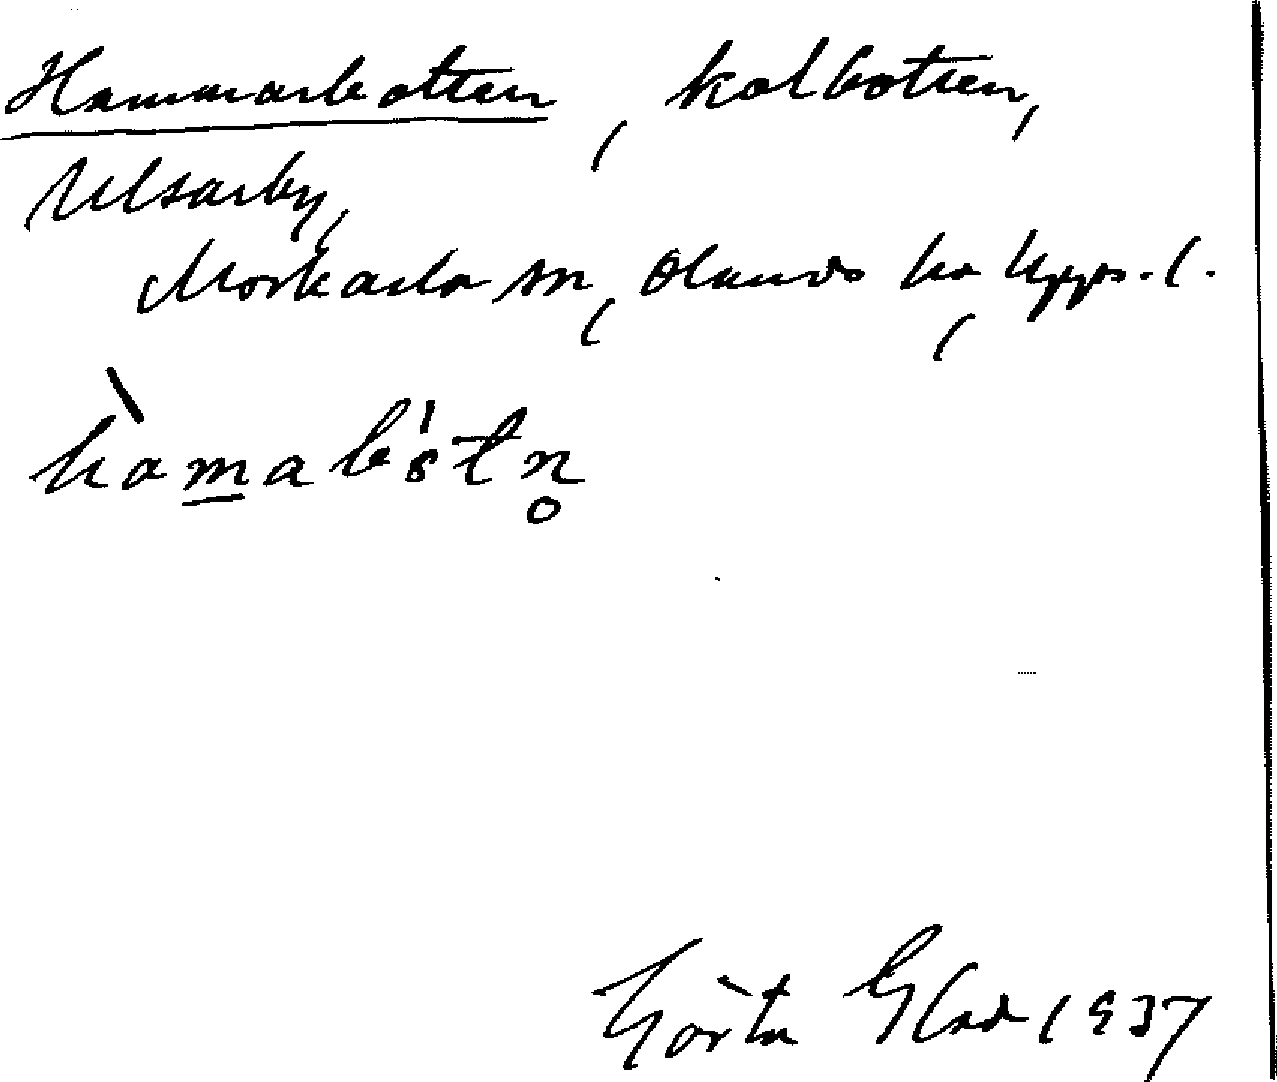 Hammarbotten, kolbotten,
Ulvsarby,
Morkarla sn, Olands hd, Upps. l.
Görta Glad 1937